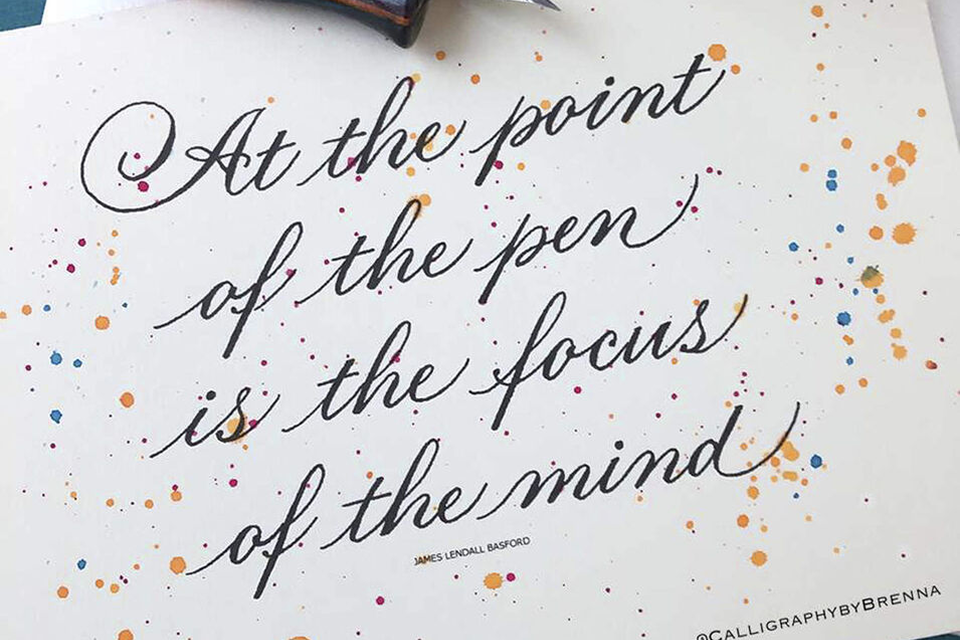 At the point
of the pen
is the focus
of the mind
JAMES LENDALL BASFORD
@CALLIGRAPHYBYBRENNA